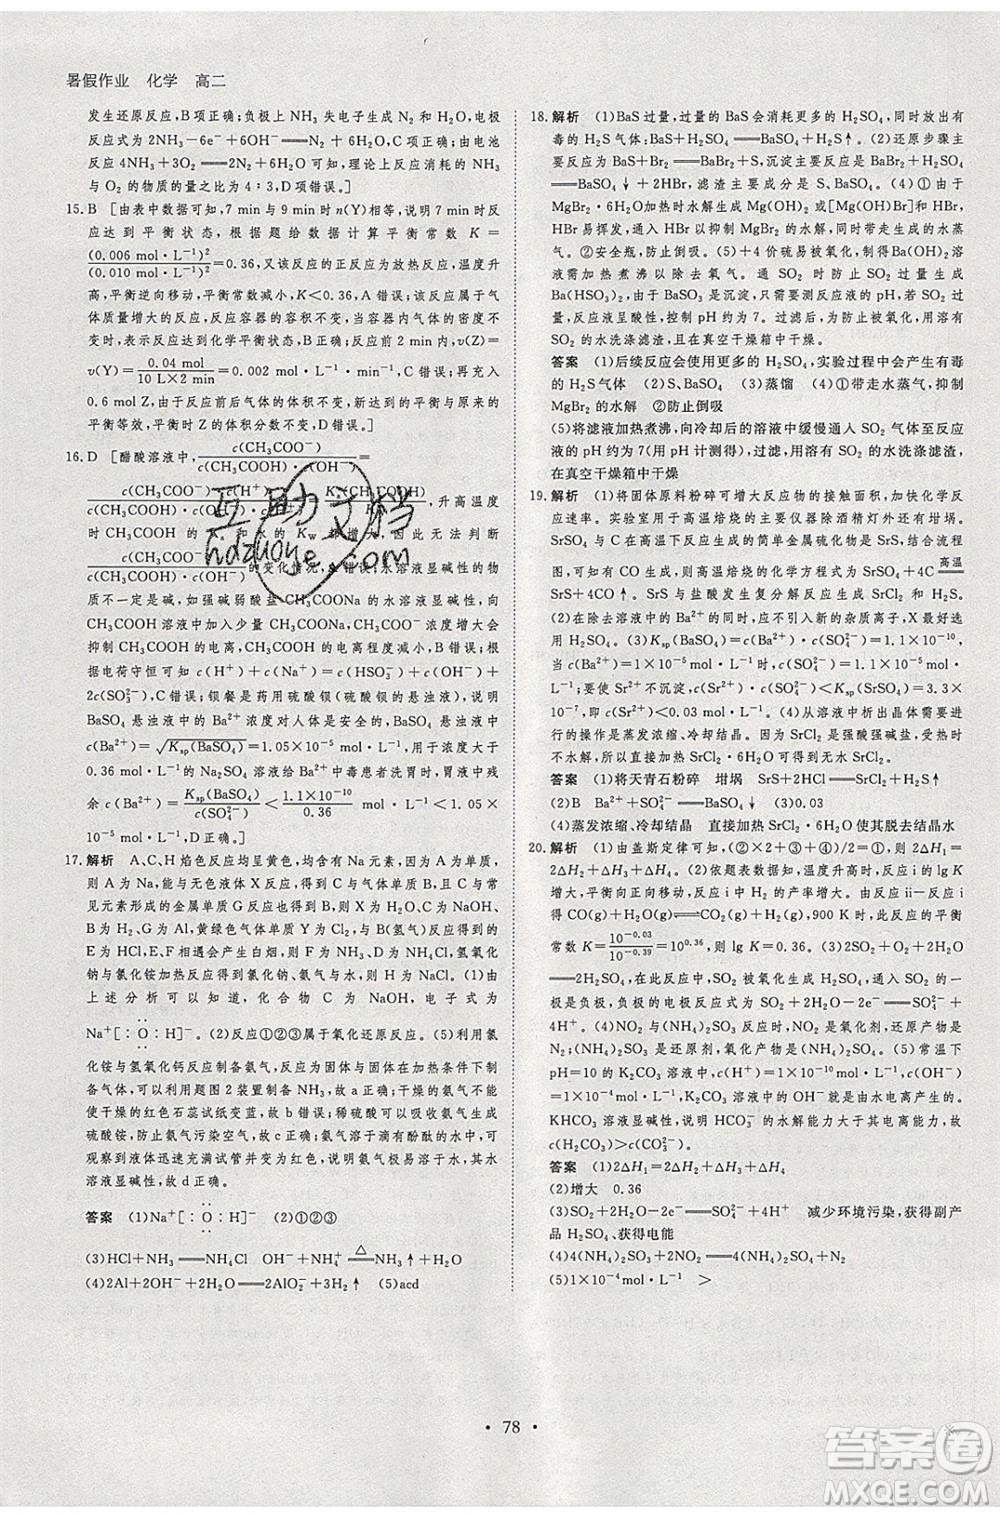 暑假作业 化学 高二
发生还原反应,B项正确;负极上NH₃失电子生成N₂和H₂O,电极
反应式为2NH₃-6e⁻+6OH⁻══N₂+6H₂O,C项正确;电池总
反应4NH₃+3O₂══2N₂+6H₂O可知,理论上反应消耗的NH₃
与O₂的物质的量比为4∶3,D项错误。]
15.B [由表中数据可知,7 min与9 min时n(Y)相等,说明7 min时反
应达到平衡状态,根据题给数据计算平衡常数K=
(0.006 mol·L⁻¹)²/(0.010 mol·L⁻¹)²=0.36,又该反应的正反应为放热反应,温度升
高,平衡逆向移动,平衡常数减小,K<0.36,A错误;该反应为气体
总体积不变的反应,反应容器的容积不变,反应过程中压强始终不
变,不能表示反应达到化学平衡状态,C错误;0~2 min内,v(Z)=
v(Y)=0.04 mol/(10 L×2 min)=0.002 mol·L⁻¹·min⁻¹,B正确;再充入
0.6 mol Z,相当于反应前气体的体积增大,新达到的平衡与原来的
平衡等效,平衡时Z的体积分数不变,D错误。]
16.D [醋酸溶液中,c(CH₃COO⁻)/(c(CH₃COOH)·c(OH⁻))=
c(CH₃COO⁻)·c(H⁺)/(c(CH₃COOH)·c(OH⁻)·c(H⁺))=K(CH₃COOH)/Kw,升高温度
的变化情况,A错误;水溶液显碱性的物质
不一定为碱,如强碱弱酸盐CH₃COONa的水溶液显碱性,向
CH₃COOH溶液中加入少量CH₃COONa,CH₃COO⁻浓度增大,抑制
CH₃COOH的电离,CH₃COOH的电离程度减小,B错误;根
据电荷守恒可知c(H⁺)+c(Na⁺)=c(HSO₃⁻)+c(OH⁻)+
2c(SO₃²⁻),C错误;钡餐是药用硫酸钡(硫酸钡的悬浊液),说明
BaSO₄悬浊液中的Ba²⁺浓度对人体是安全的,BaSO₄悬浊液中
c(Ba²⁺)=√Ksp(BaSO₄)=√1.1×10⁻¹⁰≈1.05×10⁻⁵ mol·L⁻¹,用
0.36 mol·L⁻¹的Na₂SO₄溶液给中毒患者洗胃时,胃液中残
余c(Ba²⁺)=Ksp(BaSO₄)/c(SO₄²⁻)<1.1×10⁻¹⁰/0.36 mol·L⁻¹<1.05×
10⁻⁵ mol·L⁻¹,D正确。]
17.解析 A、C、H焰色反应均呈黄色,均含有Na元素,三种均为短周期
单质A为Na,能与无色液体X反应生成C与气体单质B,则X为H₂O,B为H₂,C为NaOH,
常见元素形成的金属单质G反应得到B(氢气),
故G为Al,黄绿色气体单质Y为Cl₂,则D为HCl,
E、F相遇会有白烟生成,氢氧化
钠与氯化铵加热反应得到氯化钠、氨气与水,(1)由
上述分析可以知道,化合物C为NaOH,电子式为
Na⁺[:Ö:H]⁻。(2)反应①②③属于氧化还原反应。(5)氯化
铵与氢氧化钙反应制备氨气,反应为固体与固体加热下制
备气体,可以利用题图2装置制备NH₃,故a正确;干燥的氨气不能
使干燥的红色石蕊试纸变蓝,故b错误;稀硫酸可以吸收氨气生成
硫酸铵,可以防止氨气污染空气,故c正确;氨气极易溶于水,可
观察到液体迅速充满试管并变为红色,说明氨气极易溶于水、水
溶液显碱性,故d正确。
答案 (1)Na⁺[:Ö:H]⁻ (2)①②③
(3)HCl+NH₃══NH₄Cl OH⁻+NH₄⁺△══NH₃↑+H₂O
(4)2Al+2OH⁻+2H₂O══2AlO₂⁻+3H₂↑ (5)acd
18.解析 (1)BaS过量,过量的BaS会消耗更多的H₂SO₄,并产生有
毒的H₂S气体:BaS+H₂SO₄══BaSO₄+H₂S↑。(2)还原步骤主
要反应为BaS+Br₂══BaBr₂+S,沉淀主要反应为BaBr₂+H₂SO₄
══BaSO₄↓+2HBr,滤渣成分是S、BaSO₄。(4)①由于
MgBr₂·6H₂O加热时水解生成Mg(OH)₂[或Mg(OH)Br]和HBr,
HBr易挥发,所以通入干燥空气的作用是带走水蒸气,抑制MgBr₂的
水解;②安全瓶,防止倒吸。(5)+4价硫易被氧化,由Ba(OH)₂溶
液需加热煮沸以除去氧气。通SO₂时防止过量生成
Ba(HSO₃)₂,由于BaSO₃是沉淀,只要测得反应液的pH,若有
溶液呈酸性,控制pH约为7。过滤后为防止氧化,用溶有
SO₂的水洗涤滤渣,且在真空干燥箱中干燥。
答案 (1)后续反应会使用更多的H₂SO₄,实验过程中会产生有毒
的H₂S气体 (2)S、BaSO₄ (3)蒸馏 (4)①带走水蒸气,抑制
MgBr₂的水解 ②防止倒吸
(5)将滤液加热煮沸,向冷却后的溶液中缓慢通入SO₂至反应
液的pH约为7(用pH计测得),过滤,用溶有SO₂的水洗涤滤渣,
在真空干燥箱中干燥
19.解析 (1)将固体原料粉碎可增大反应物的接触面积,加快化学反
应速率。实验室用于高温焙烧的主要仪器除酒精灯外还有坩埚。
SrSO₄与C在高温下反应生成的含锶元素的主要金属硫化物是SrS,结合流程
图,可知有CO生成,则高温焙烧的化学方程式为SrSO₄+4C高温══
SrS+4CO↑。SrS与盐酸发生复分解反应生成SrCl₂和H₂S。
(3)Ksp(BaSO₄)=c(Ba²⁺)·c(SO₄²⁻),当
=3.3×
10⁻⁷,则c(Sr²⁺)<0.03 mol·L⁻¹。(4)从溶液中析出晶体进
行的操作是蒸发浓缩、冷却结晶。因为SrCl₂是强酸强碱盐,受热时
不水解,所以直接加热SrCl₂·6H₂O可得到无水SrCl₂。
答案 (1)将天青石粉碎 坩埚 SrS+2HCl══SrCl₂+H₂S↑
(2)B Ba²⁺+SO₄²⁻══BaSO₄↓ (3)0.03
(4)蒸发浓缩、冷却结晶 直接加热SrCl₂·6H₂O使其脱去结晶水
20.解析 (1)由盖斯定律可知,(②×2+③+④)/2=①,则2ΔH₁=
2ΔH₂+ΔH₃+ΔH₄。(2)依据题表数据,温度升高时,反应i的lg K
增大,平衡向正向移动,反应i中H₂的产率增大。由反应ii-反应i
得CO(g)+H₂O(g)⇌CO₂(g)+H₂(g),900 K时,此反应的平衡
常数K=10⁻⁰·⁰³/10⁻⁰·³⁹=10⁰·³⁶,则lg K=0.36。(3)2SO₂+O₂+2H₂O
══2H₂SO₄,此反应中,SO₂被氧化生成H₂SO₄,通入SO₂的一
极是负极,负极的电极反应式为SO₂+2H₂O-2e⁻══SO₄²⁻+
4H⁺。(4)NO₂与(NH₄)₂SO₃反应,NO₂作氧化剂,还原产物为N₂,
(NH₄)₂SO₃是还原剂,氧化产物为(NH₄)₂SO₄。(5)常温下
pH=10的K₂CO₃溶液中OH⁻的物质的量浓度为1×10⁻⁴ mol·L⁻¹。
KHCO₃溶液显碱性,说明HCO₃⁻的水解能力大于其电离能力,故
c(H₂CO₃)>c(CO₃²⁻)。
答案 (1)2ΔH₁=2ΔH₂+ΔH₃+ΔH₄
(2)增大 0.36
(3)SO₂+2H₂O-2e⁻══SO₄²⁻+4H⁺ 减少环境污染,获得副产
品H₂SO₄,获得电能
(4)4(NH₄)₂SO₃+2NO₂══4(NH₄)₂SO₄+N₂
(5)1×10⁻⁴ mol·L⁻¹ >
• 78 •
互助文档
hdzuoye.cn
答案圈
MXQE.COM